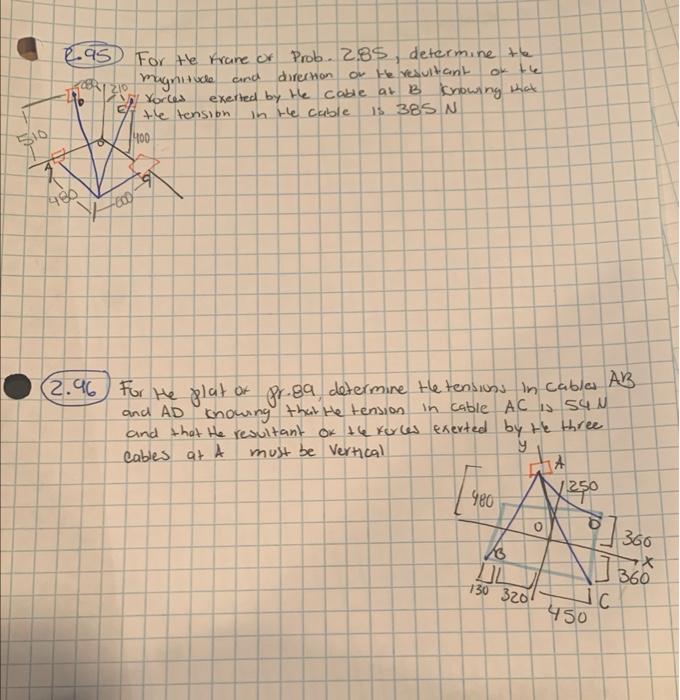 2.95 For the frame of Prob. 2.85, determine the
magnitude and direction of the resultant of the
forces exerted by the cable at B knowing that
the tension in the cable is 385 N
280 210
D E
510
O 400
A
C
480
600
2.96 For the plat of pr. 89, determine the tensions in cables AB
and AD knowing that the tension in cable AC is 54 N
and that the resultant of the forces exerted by the three
cables at A must be vertical
y
A
480 250
O D
360
B x
360
130 320
C
450